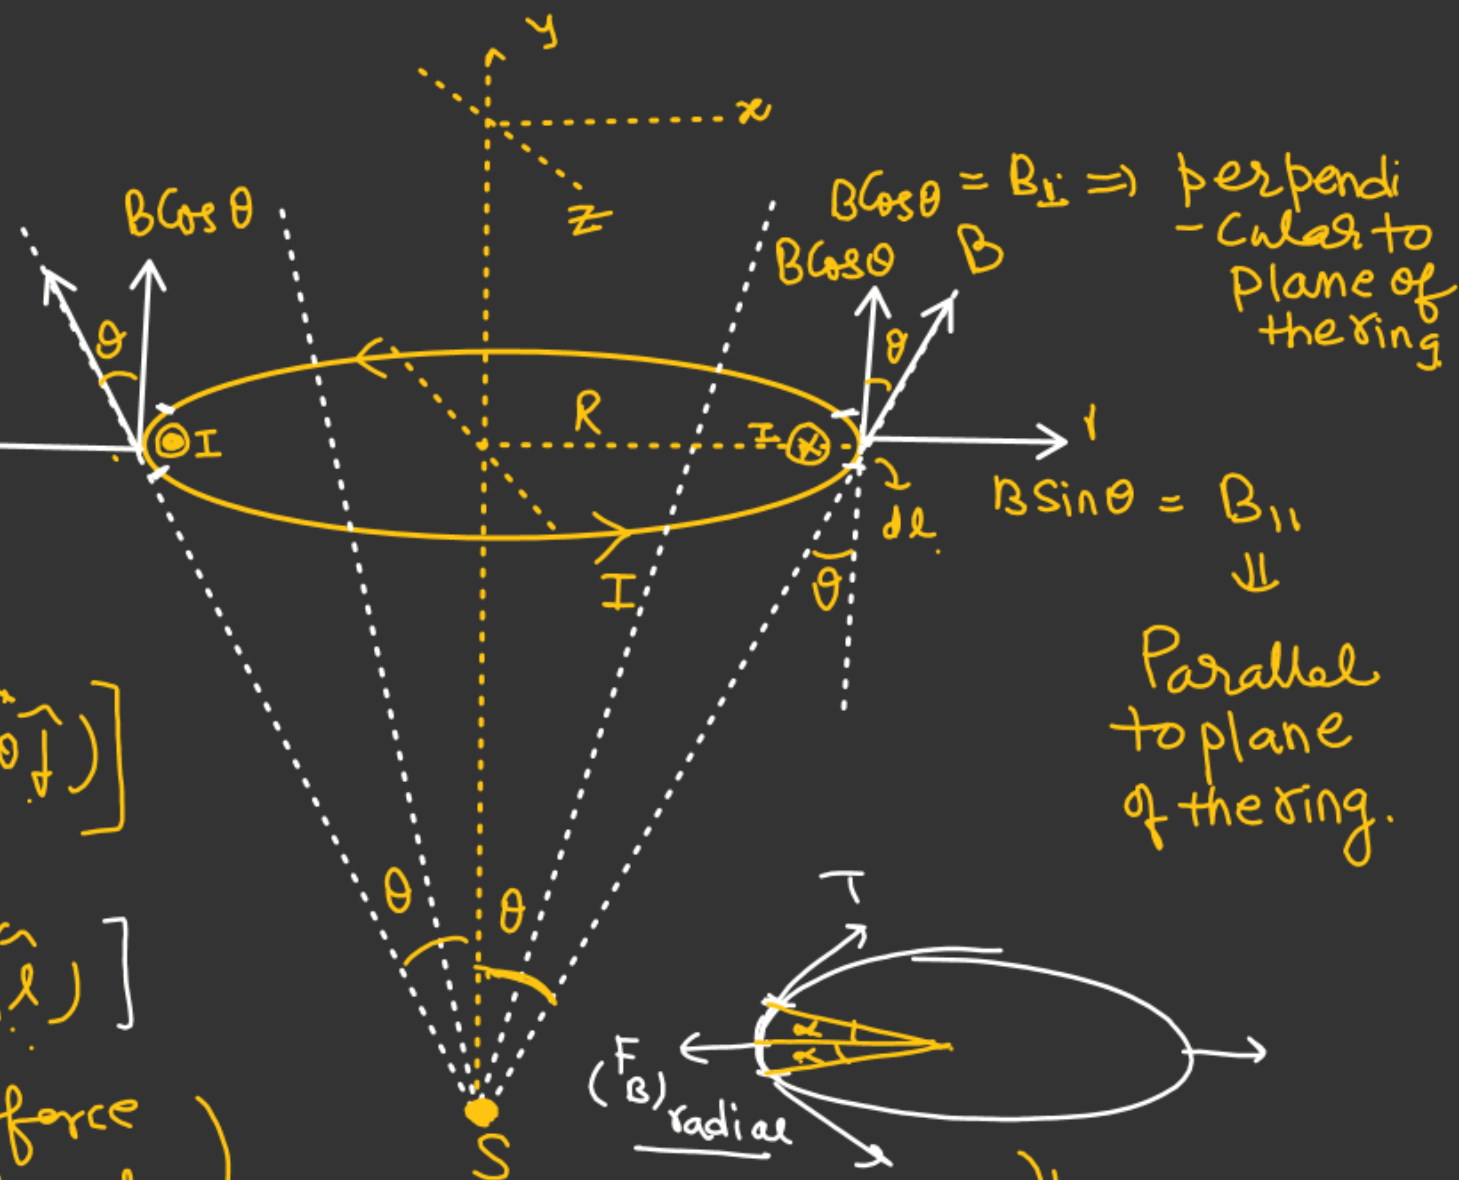 y
x
z
BCosθ
BCosθ = B⊥ ⇒ perpendi
- Cular to
plane of
the ring
BCosθ
B
θ
θ
R
I
I
r
dl.
BSinθ = B||
⇓
Parallel
to plane
of the ring.
θ
I
θ ĵ)]
θ
θ
l̂)]
T
α
α
(F_B)radial
force
S